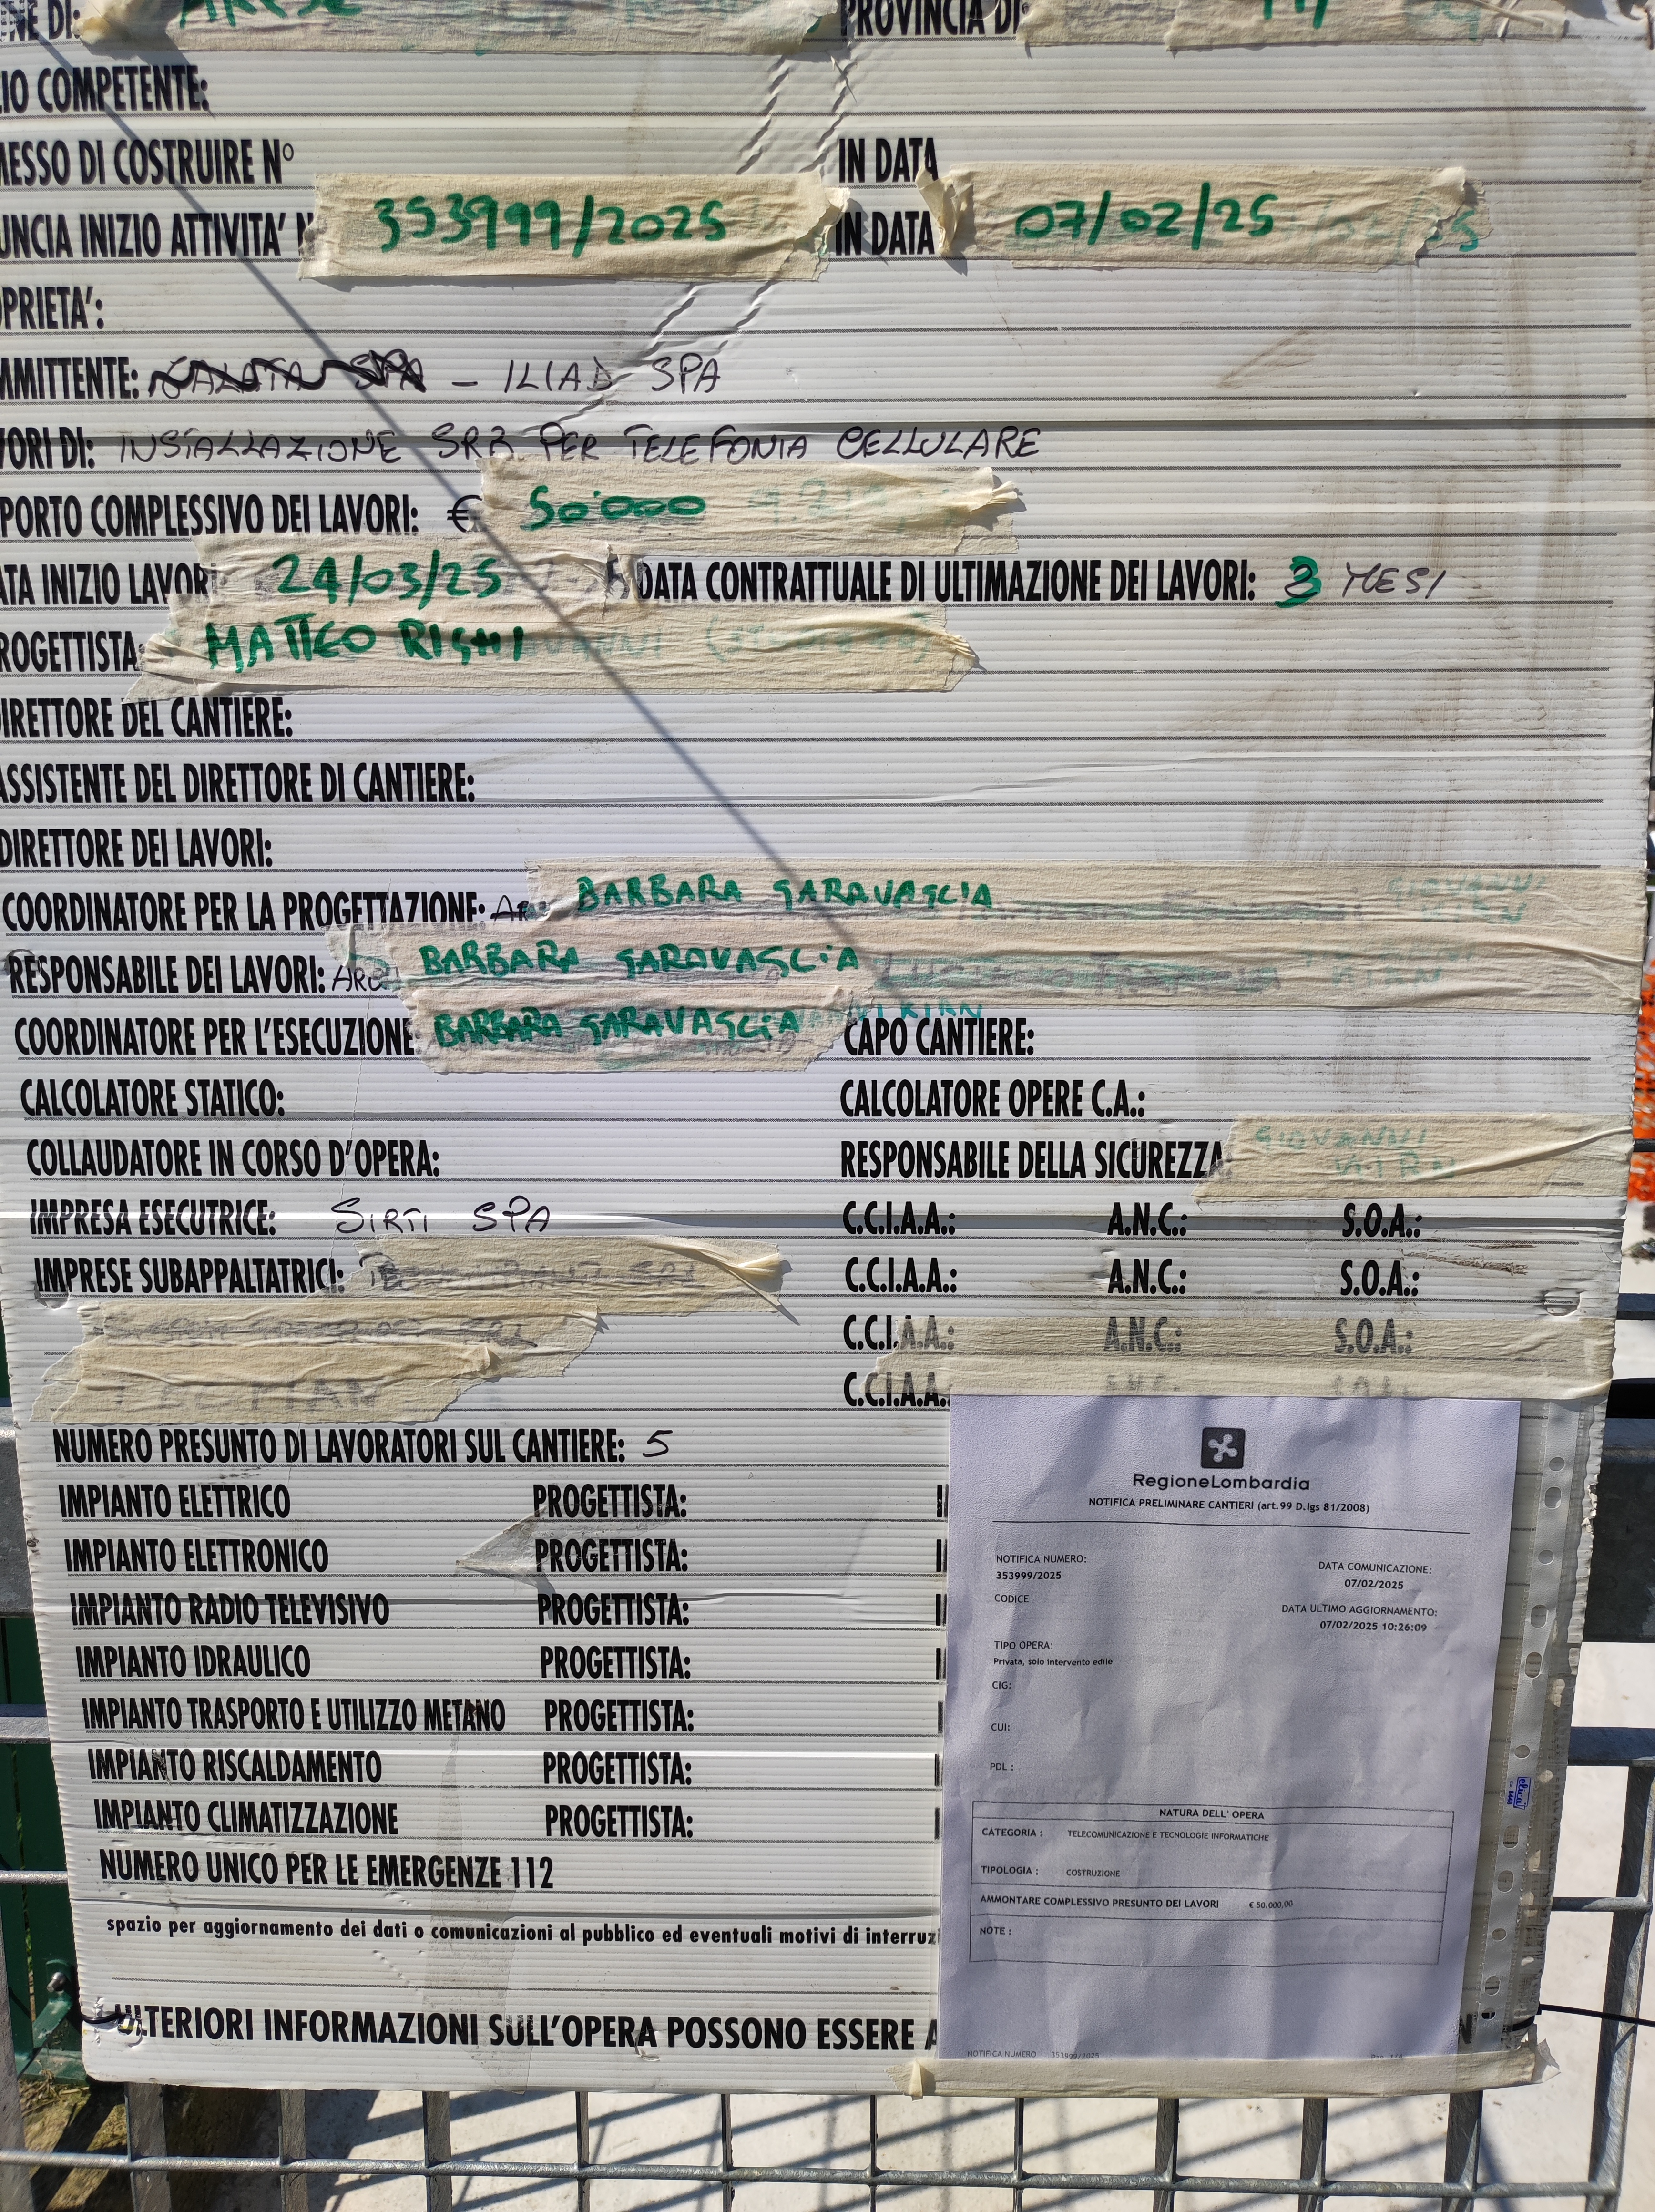 NE DI: ARESE PROVINCIA DI: MI
IO COMPETENTE:
MESSO DI COSTRUIRE N° IN DATA
UNCIA INIZIO ATTIVITA' N 353999/2025 IN DATA 07/02/25
OPRIETA':
MMITTENTE: GALATA SPA - ILIAD SPA
VORI DI: INSTALLAZIONE SRB PER TELEFONIA CELLULARE
PORTO COMPLESSIVO DEI LAVORI: € 50'000
ATA INIZIO LAVORI 24/03/25 DATA CONTRATTUALE DI ULTIMAZIONE DEI LAVORI: 3 MESI
ROGETTISTA MATTEO RIGHI
DIRETTORE DEL CANTIERE:
ASSISTENTE DEL DIRETTORE DI CANTIERE:
DIRETTORE DEI LAVORI:
COORDINATORE PER LA PROGETTAZIONE: BARBARA GARAVAGLIA
GIOVANNI
KIRN
RESPONSABILE DEI LAVORI: BARBARA GARAVAGLIA
COORDINATORE PER L'ESECUZIONE BARBARA GARAVAGLIA CAPO CANTIERE:
CALCOLATORE STATICO: CALCOLATORE OPERE C.A.:
COLLAUDATORE IN CORSO D'OPERA: RESPONSABILE DELLA SICUREZZA GIOVANNI
KIRN
IMPRESA ESECUTRICE: SIRTI SPA C.C.I.A.A.: A.N.C.: S.O.A.:
IMPRESE SUBAPPALTATRICI: C.C.I.A.A.: A.N.C.: S.O.A.:
C.C.I.A.A.: A.N.C.: S.O.A.:
C.C.I.A.A. A.N.C. S.O.A.:
NUMERO PRESUNTO DI LAVORATORI SUL CANTIERE: 5
IMPIANTO ELETTRICO PROGETTISTA:
IMPIANTO ELETTRONICO PROGETTISTA:
IMPIANTO RADIO TELEVISIVO PROGETTISTA:
IMPIANTO IDRAULICO PROGETTISTA:
IMPIANTO TRASPORTO E UTILIZZO METANO PROGETTISTA:
IMPIANTO RISCALDAMENTO PROGETTISTA:
IMPIANTO CLIMATIZZAZIONE PROGETTISTA:
NUMERO UNICO PER LE EMERGENZE 112
spazio per aggiornamento dei dati o comunicazioni al pubblico ed eventuali motivi di interruz
ULTERIORI INFORMAZIONI SULL'OPERA POSSONO ESSERE A
RegioneLombardia
NOTIFICA PRELIMINARE CANTIERI (art.99 D.lgs 81/2008)
NOTIFICA NUMERO:
353999/2025
DATA COMUNICAZIONE:
07/02/2025
CODICE
DATA ULTIMO AGGIORNAMENTO:
07/02/2025 10:26:09
TIPO OPERA:
Privata, solo intervento edile
CIG:
CUI:
PDL :
NATURA DELL' OPERA
CATEGORIA : TELECOMUNICAZIONE E TECNOLOGIE INFORMATICHE
TIPOLOGIA : COSTRUZIONE
AMMONTARE COMPLESSIVO PRESUNTO DEI LAVORI € 50.000,00
NOTE :
NOTIFICA NUMERO 353999/2025